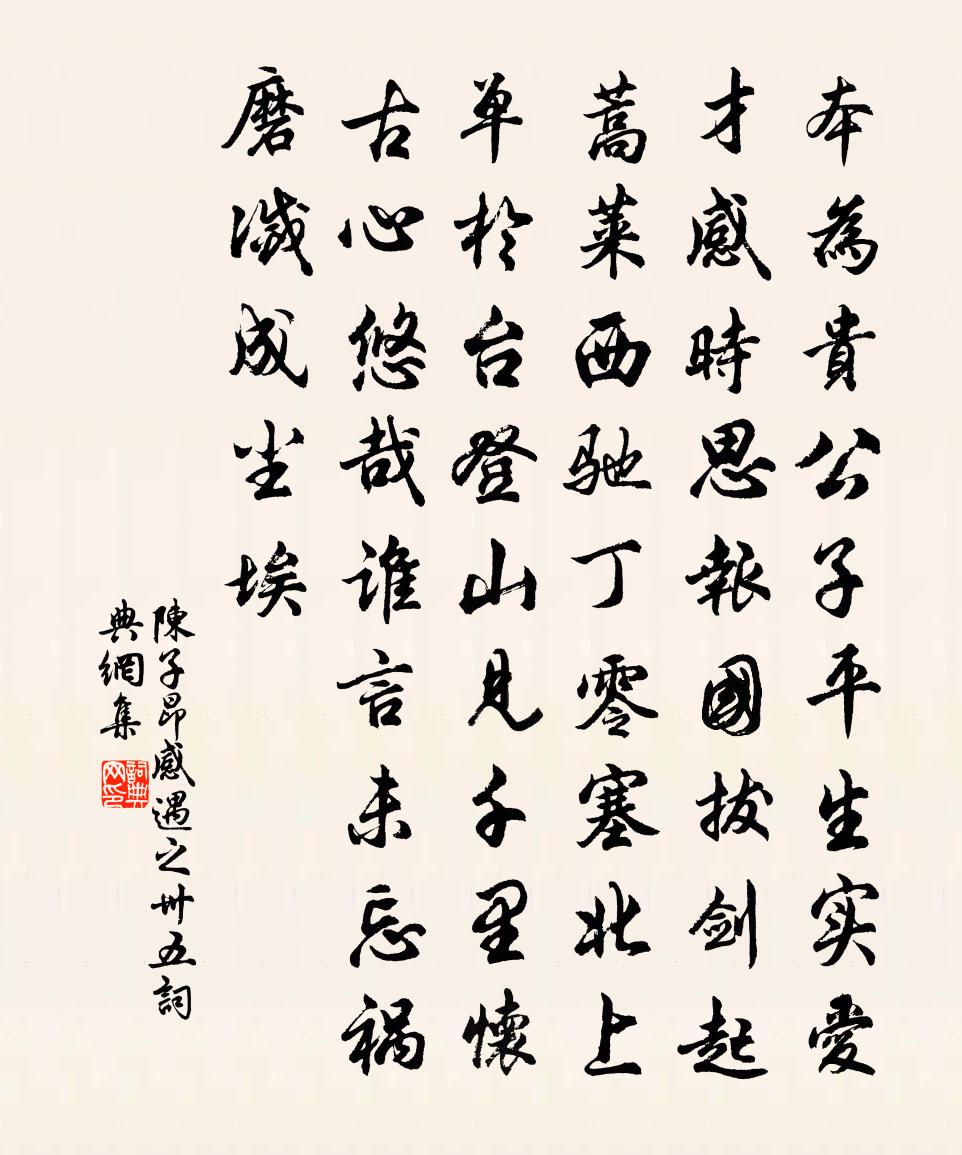 本為貴公子平生实愛
才感時思報國拔剑起
蒿莱西驰丁零塞北上
单於台登山見千里懷
古心悠哉谁言未忘祸
磨滅成尘埃
陳子昂感遇之卅五詞
典網集
詞典网印